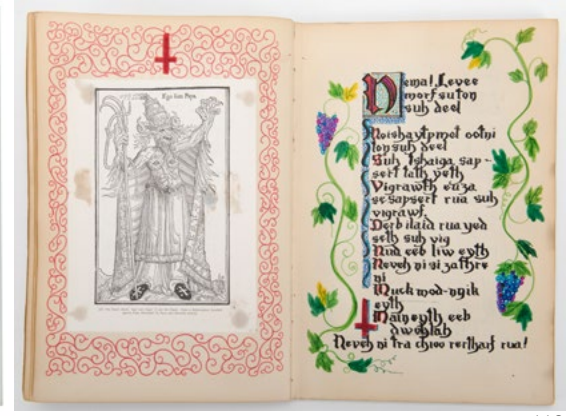 Ego sum Papa.
Nema! Levee
morf su ton
suh deel
Noishaytpmet ootni
ton suh deel
Suh tshaiga sap-
sert tath yeth
Vigrawth eu za
sesapsert rua suh
vigrawf.
Derb ilaid rua yed
seth suh vig
Nud eeb liw eyth
Neveh ni si za thre
ni
Muckmod-ngik
eyth
Main eyth eeb
dwohlah
Neveh ni tra chioo rertharf rua!